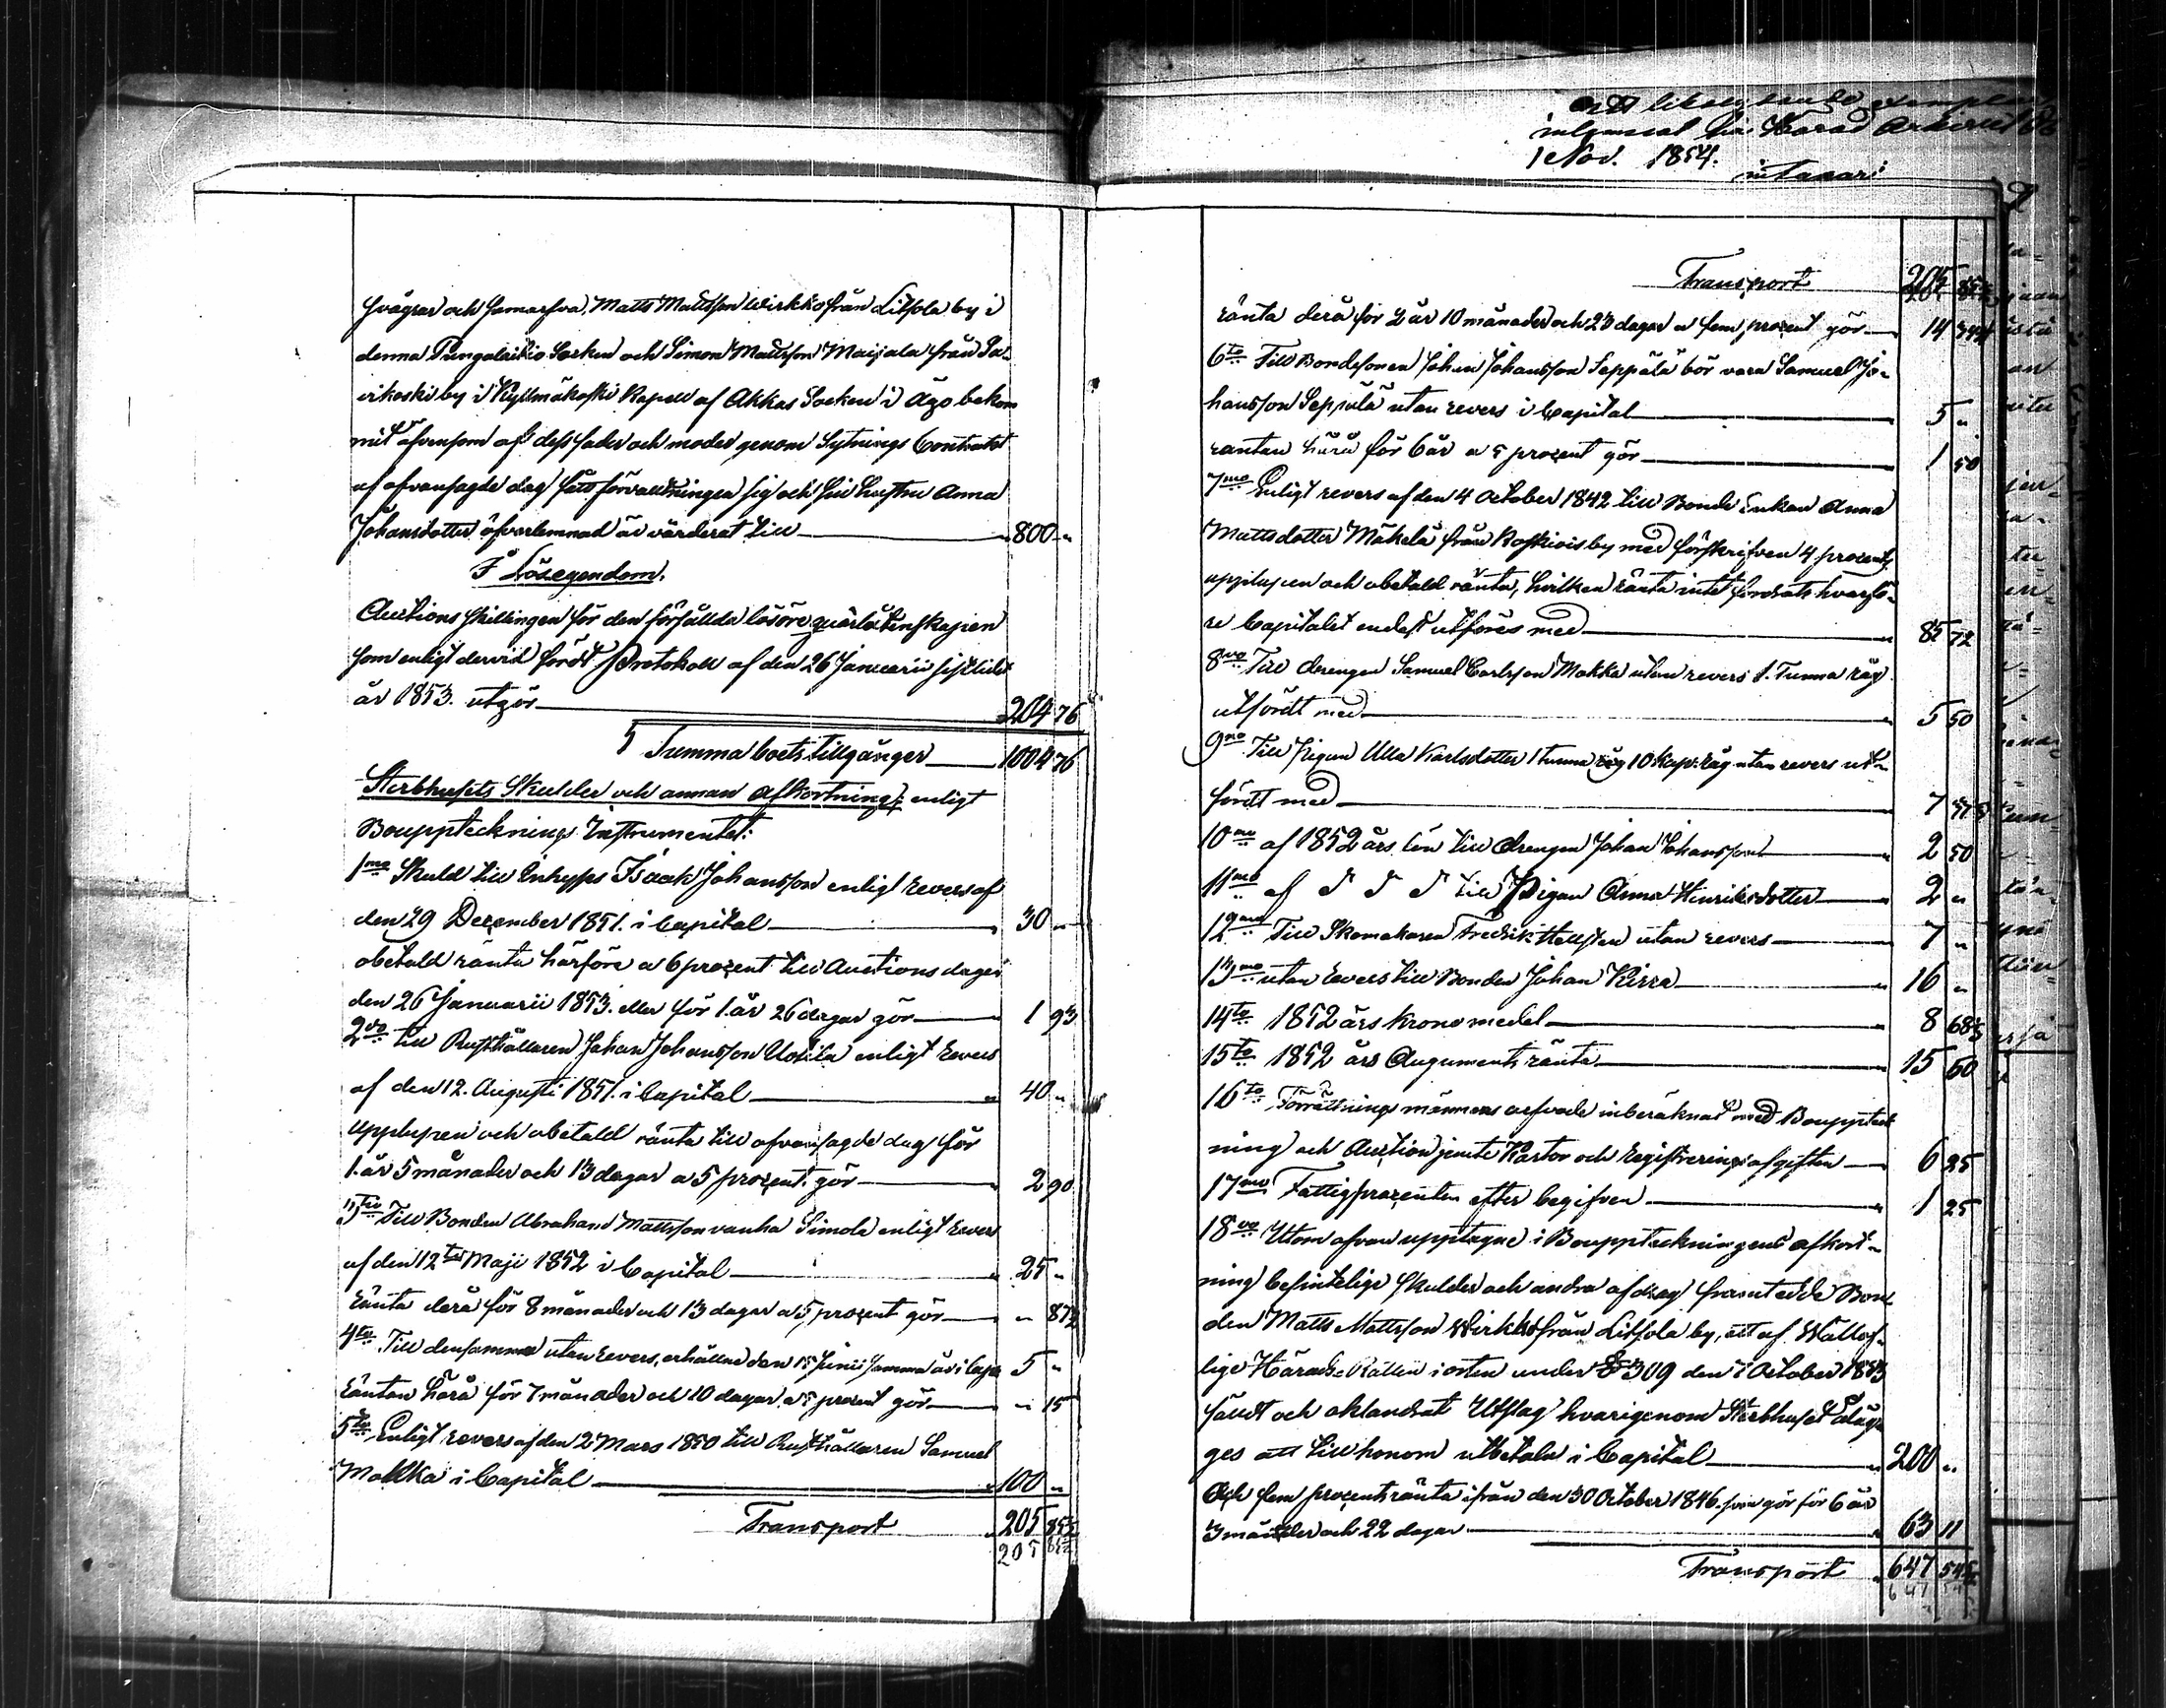 swågrar och Sämarswa, Matts Mattsson Wirkko från Litsola by i
denna Tungalaitio Socken och Simon Mattsson Maijala från Sa-
wikoski by i Kyllmäkoski Kapell af Akkas Socken i ägo bekom
mit äfvensom af dess fader och moder genom Sytnings Contract
af ofvansagde dag fått förvaltningen sig och sin hustru Anna
Johansdotter öfverlemnad är värderat till 800 "
I Lösegendom.
Auctions skillingen för den försållda lösöre qvarlåtenskapen
som enligt dervid fördt Protokoll af den 26 Januarii sistlidet
år 1853. utgör 204 76
Summa boets tillgånger 1004 76
Sterbhusets Skulder och annan afkortning; enligt
Bouppteknings Instrumentet:
1mo Skuld till Inhyses Isaak Johansson enligt revers af
den 29 December 1851. i Capital 30 "
obetald ränta härföre a 6 prozent till Auctions dagen
den 26 Januarii 1853. eller för 1. år 26 dagar gör 1 93
2do till Rusthållaren Johan Johansson Uotila enligt revers
af den 12. Augusti 1851. i Capital 40 "
upplupen och obetald ränta till ofvansagde dag för
1. år 5 månader och 13 dagar a 5 prozent gör 2 90
3tio Till Bonden Abraham Mattsson vanha Simola enligt revers
af den 12te Maji 1852 i Capital 25 "
ränta derå för 8 månader och 13 dagar a 5 prozent gör " 87½
4to Till densamme utan revers, erhållne den 15 Junii samma år i Cap. 5 "
räntan härå för 7 månader och 10 dagar a 5 prozent gör " 15
5to Enligt revers af den 2 Mars 1850 till Rusthållaren Samuel
Makka i Capital 100 "
Transport 205 85½
205 85½
ett likalydande exemplar
inlemnat hos Härad
1 Nov. 1854.
Transport 205 85½
ränta derå för 2 år 10 månader och 23 dagar a fem prozent gör 14
6to Till Bondesonen Johan Johansson Seppälä bör vara Samuel Jo-
hansson Seppälä utan revers i Capital 5 "
räntan härå för 6 år a 5 prozent gör 1 50
7mo Enligt revers af den 4 October 1842 till Bonde Enkan Anna
Mattsdotter Mäkelä från Koskiois by med förskrifven 4 prozents
upplupen och obetald ränta, hvilken ränta intet fordrats hvarfö-
re Capitalet endast utföres med 85 72
8vo Till drengen Samuel Carlsson Makka utan revers 1. Tunna råg
utfördt med 5 50
9no Till Pigan Ulla Karlsdotter 1 tunna råg 10 kap: råg utan revers ut-
fördt med 7
10mo af 1852 års lön till drengen Johan Johansson 2 50
11mo af d d d till Pigan Anna Henriksdotter 2 "
12mo Till Skomakaren Fredrik Hellsten utan revers 7 "
13mo utan revers till Bonden Johan Kirra 16 "
14to 1852 års Krono medel 8 68
15to 1852 års Augments ränta 15 60
16to Förrättnings männens arfvode inberäknat med Bouppteck
ning och Auction jemte Kartor och registreringsafgiften 6 25
17mo Fattigprozenten efter begifven 1 25
18vo Utom ofvan upptagne i Bouppteckningens afkort-
ning befintelige skulder och andra afdrag framtedde Bon-
den Matts Mattsson Wirkko från Litsola by, ett af Wällof-
lige Härads Rätten i orten under § 309 den 7 October 1853
fäldt och oklandrat Utslag hvarigenom Sterbhuset åläg-
ges att till honom utbetala i Capital 200 "
och fem prozents ränta ifrån den 30 October 1846. som gör för 6 år
3 månader och 22 dagar 63 11
Transport 647